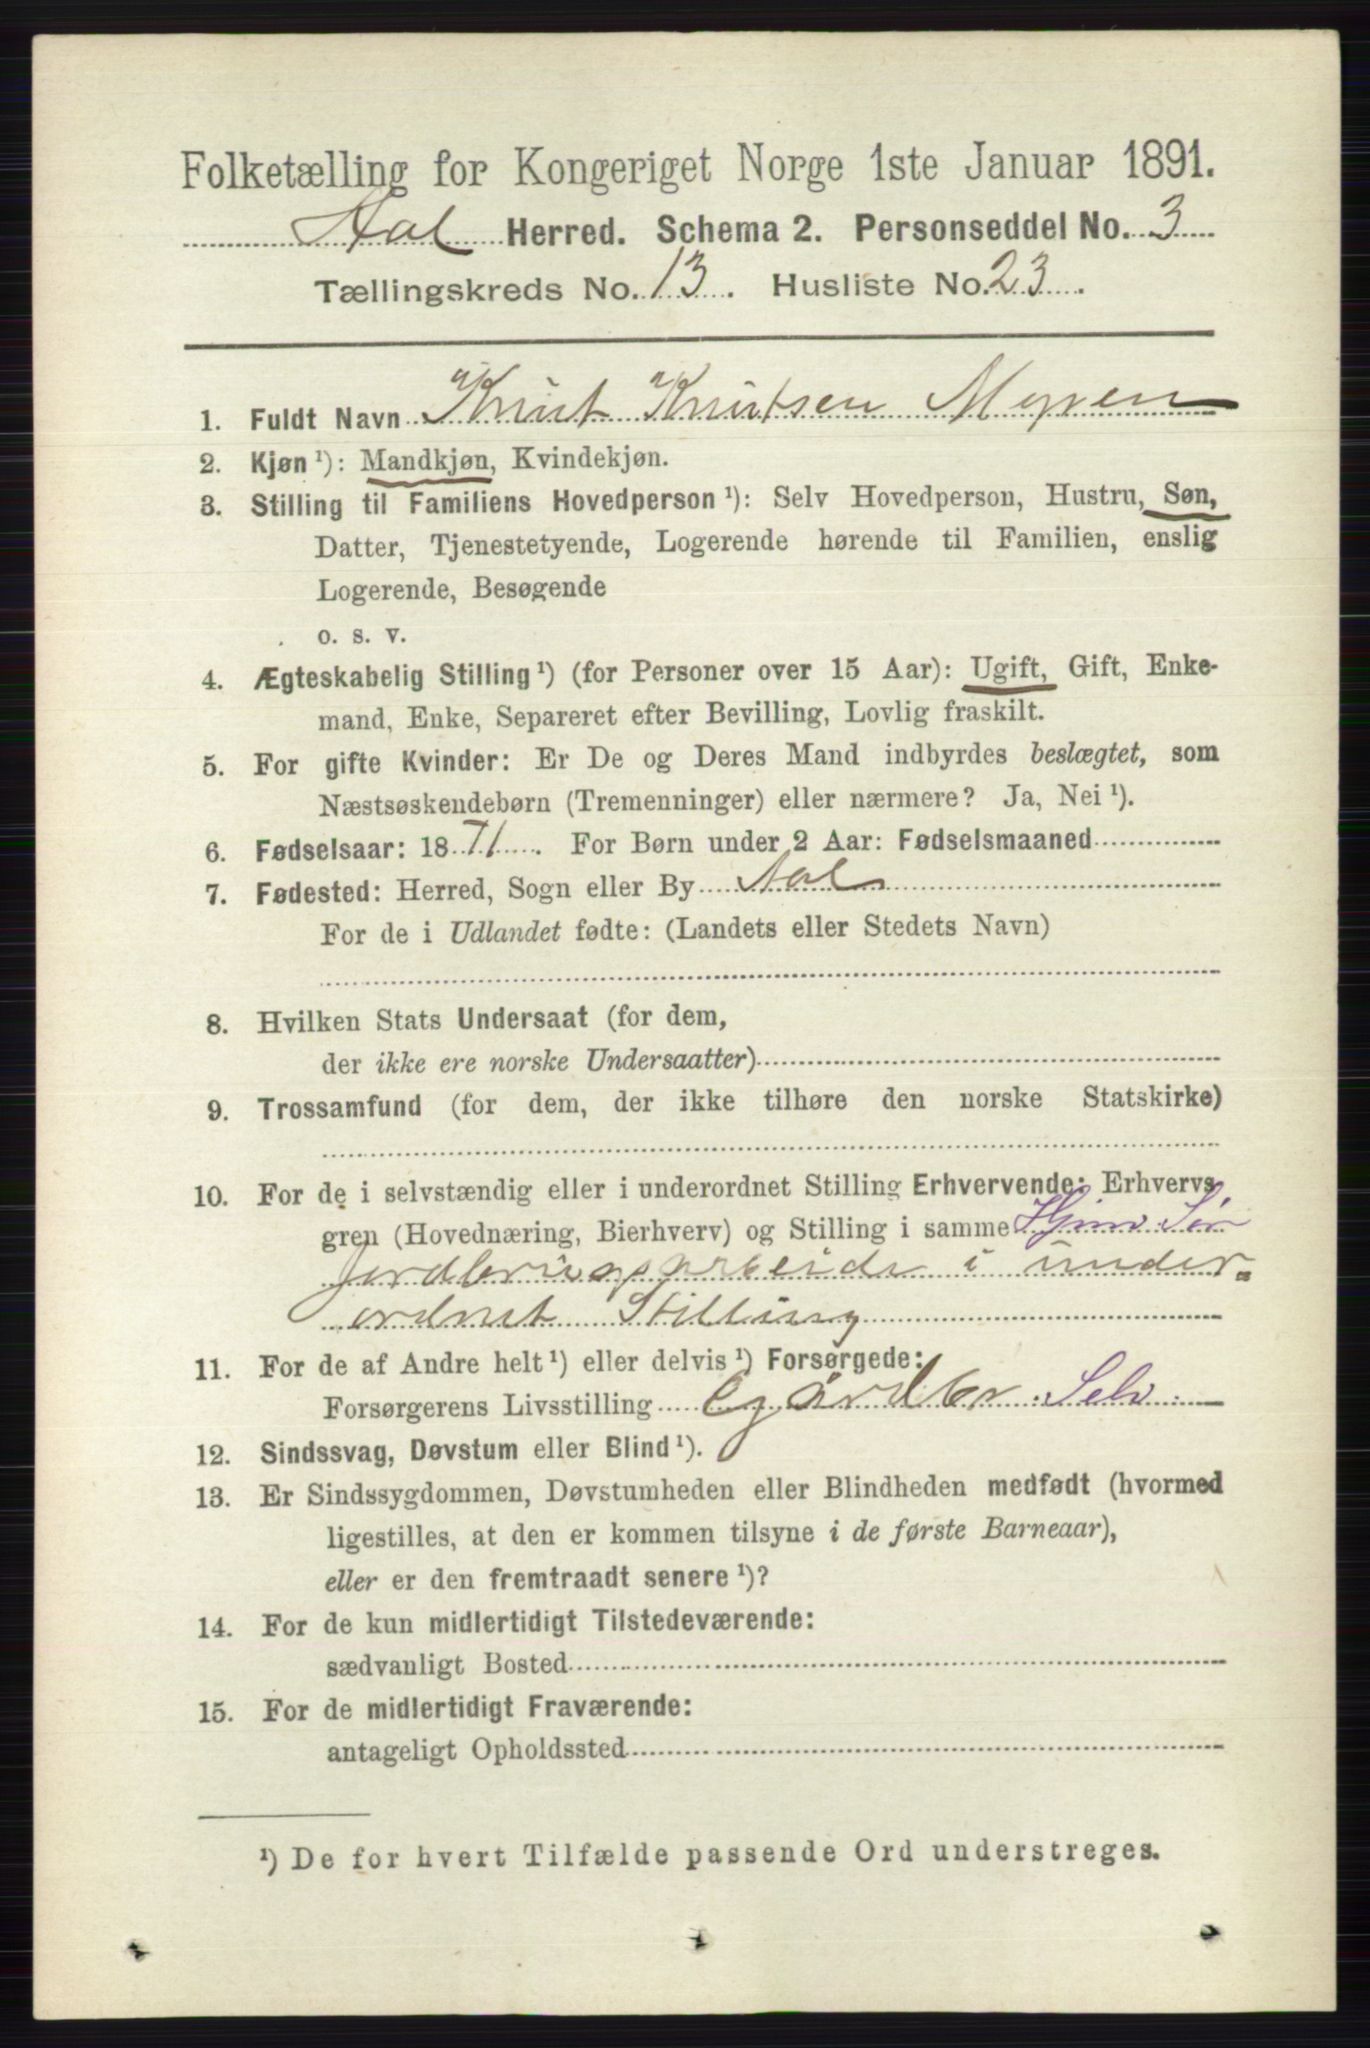 Folketælling for Kongeriget Norge 1ste Januar 1891.
Aal Herred. Schema 2. Personseddel No. 3
Tællingskreds No. 13. Husliste No. 23.
1. Fuldt Navn Knut Knutsen Myren
2. Kjøn ¹): Mandkjøn, Kvindekjøn.
3. Stilling til Familiens Hovedperson ¹): Selv Hovedperson, Hustru, Søn,
Datter, Tjenestetyende, Logerende hørende til Familien, enslig
Logerende, Besøgende
o. s. v.
4. Ægteskabelig Stilling ¹) (for Personer over 15 Aar): Ugift, Gift, Enke-
mand, Enke, Separeret efter Bevilling, Lovlig fraskilt.
5. For gifte Kvinder: Er De og Deres Mand indbyrdes beslægtet, som
Næstsøskendebørn (Tremenninger) eller nærmere? Ja, Nei ¹).
6. Fødselsaar: 1871. For Børn under 2 Aar: Fødselsmaaned
7. Fødested: Herred, Sogn eller By Aal
For de i Udlandet fødte: (Landets eller Stedets Navn)
8. Hvilken Stats Undersaat (for dem,
der ikke ere norske Undersaatter)
9. Trossamfund (for dem, der ikke tilhøre den norske Statskirke)
10. For de i selvstændig eller i underordnet Stilling Erhvervende: Erhvervs-
gren (Hovednæring, Bierhverv) og Stilling i samme Hjmv. Søn
Jordbrugsarbeide i under-
ordnet Stilling
11. For de af Andre helt ¹) eller delvis ¹) Forsørgede:
Forsørgerens Livsstilling Selv.
12. Sindssvag, Døvstum eller Blind ¹).
13. Er Sindssygdommen, Døvstumheden eller Blindheden medfødt (hvormed
ligestilles, at den er kommen tilsyne i de første Barneaar),
eller er den fremtraadt senere ¹)?
14. For de kun midlertidigt Tilstedeværende:
sædvanligt Bosted
15. For de midlertidigt Fraværende:
antageligt Opholdssted
¹) De for hvert Tilfælde passende Ord understreges.